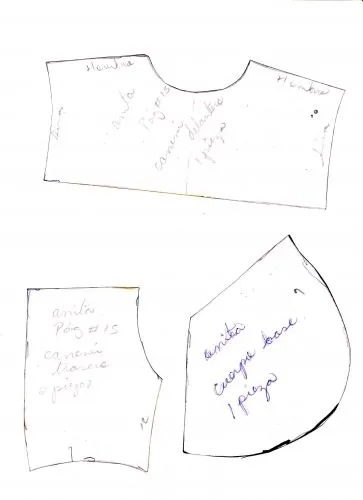 Hombro
Hombro
anita
Pág #15
canesú delantero
1 pieza
anita
Pág #15
canesú
trasero
2 piezas
anita
cuerpo base
1 pieza